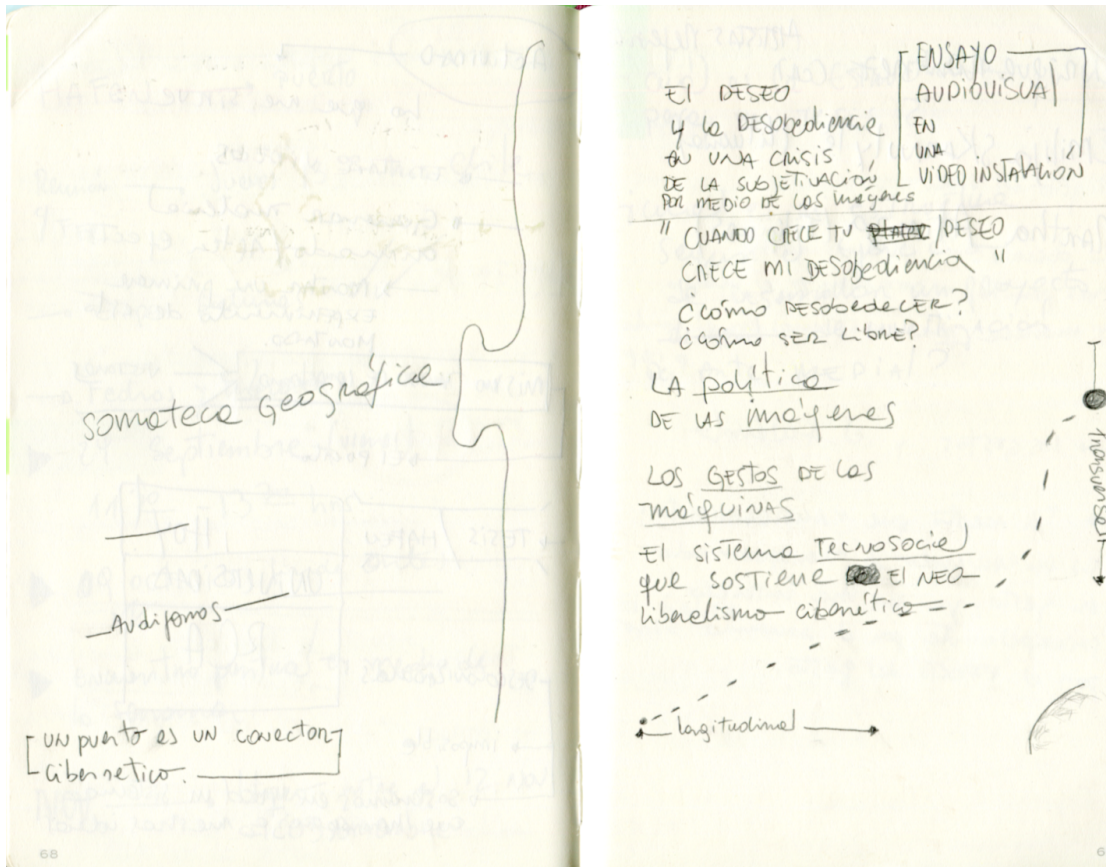 somateca Geográfica
Audifonos
un puerto es un conector
cibernetico.
68
El DESEO
y la DESobediencia
en UNA CRISIS
DE LA SUBJETIVACIÓN
POR MEDIO DE LAS imágenes
ENSAYO
AUDIOVISUAL
EN
UNA
VIDEO INSTALACIÓN
" CUANDO CRECE TU PLACER /DESEO
CRECE mi DESobediencia "
¿cómo DESobedeCER?
¿cómo SER LIBRE?
LA política
DE LAS imágenes
LOS GESTOS DE LAS
máquinas
El sistema TECNOSOCIAL
que SOSTIENE El NEO
liberalismo cibernético
transversal
longitudinal
6